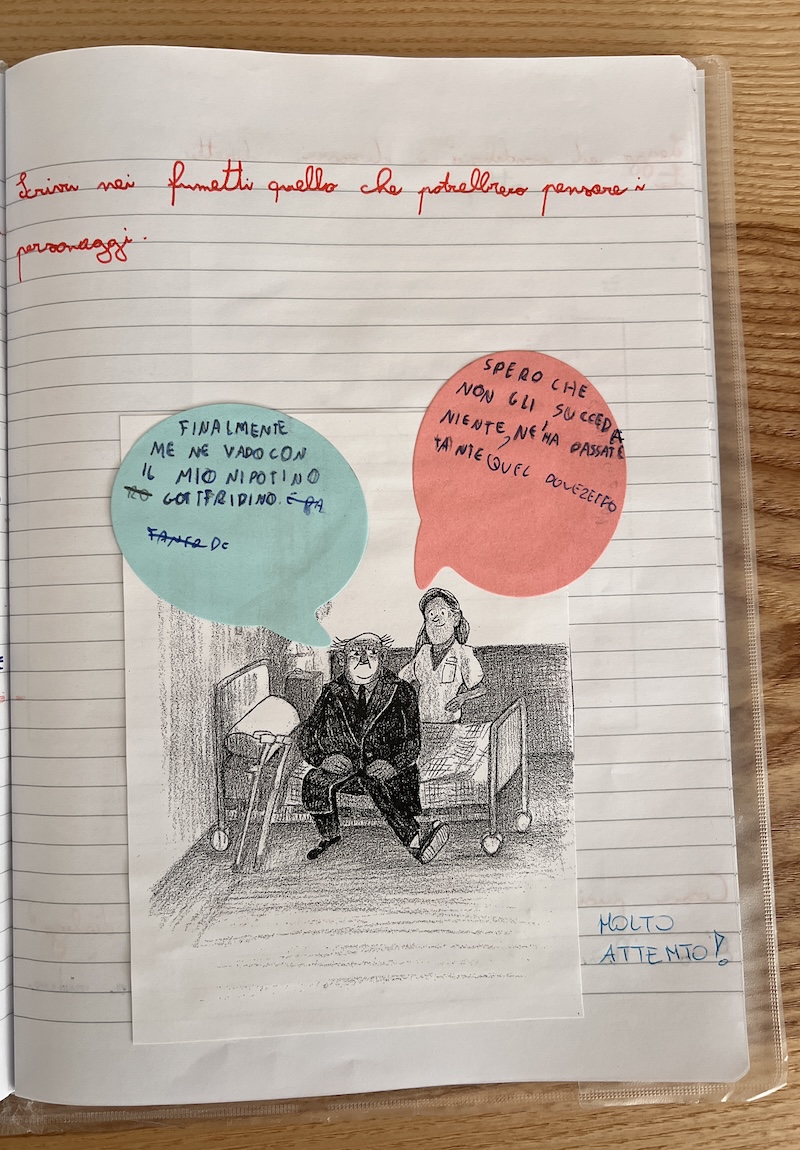 Scrivi nei fumetti quello che potrebbero pensare i
personaggi.
FINALMENTE
ME NE VADO CON
IL MIO NIPOTINO
GOTTFRIDINO.
SPERO CHE
NON GLI SUCCEDA
NIENTE, NE HA PASSATE
TANTE QUEL
MOLTO
ATTENTO!